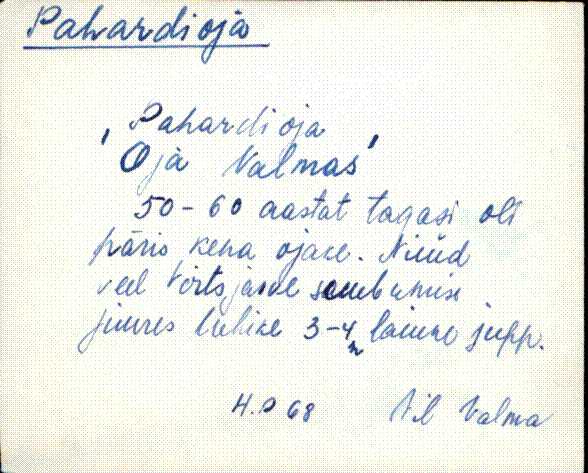 Pahardi oja
'Pahardi oja
Oja Valmas'
50-60 aastat tagasi oli
päris kena ojake. Nüüd
veel Võrtsjärve suubumise
juures lühike 3-4 m laiune jupp.
H.P 68 Vil Valma